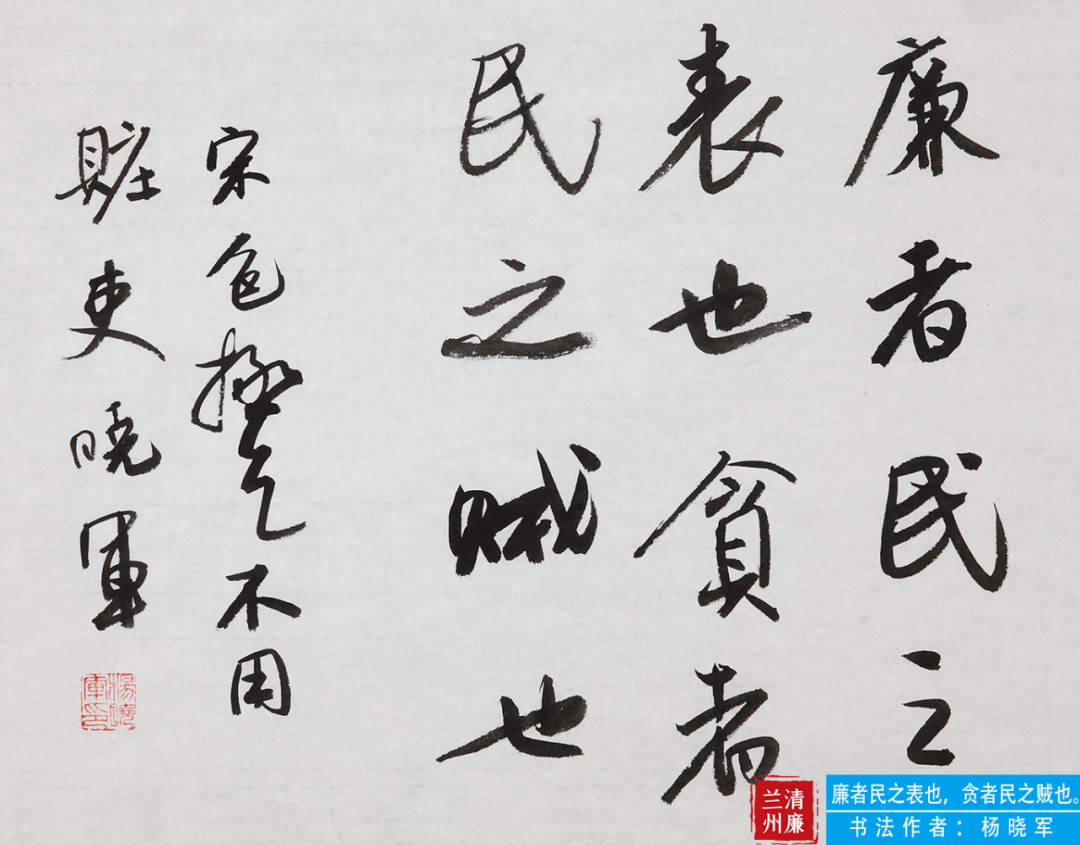 廉者民之
表也貪者
民之賊也
宋包拯乞不用
賍吏曉軍
楊曉
軍印
清廉
兰州
廉者民之表也，贪者民之贼也。
书法作者：杨晓军